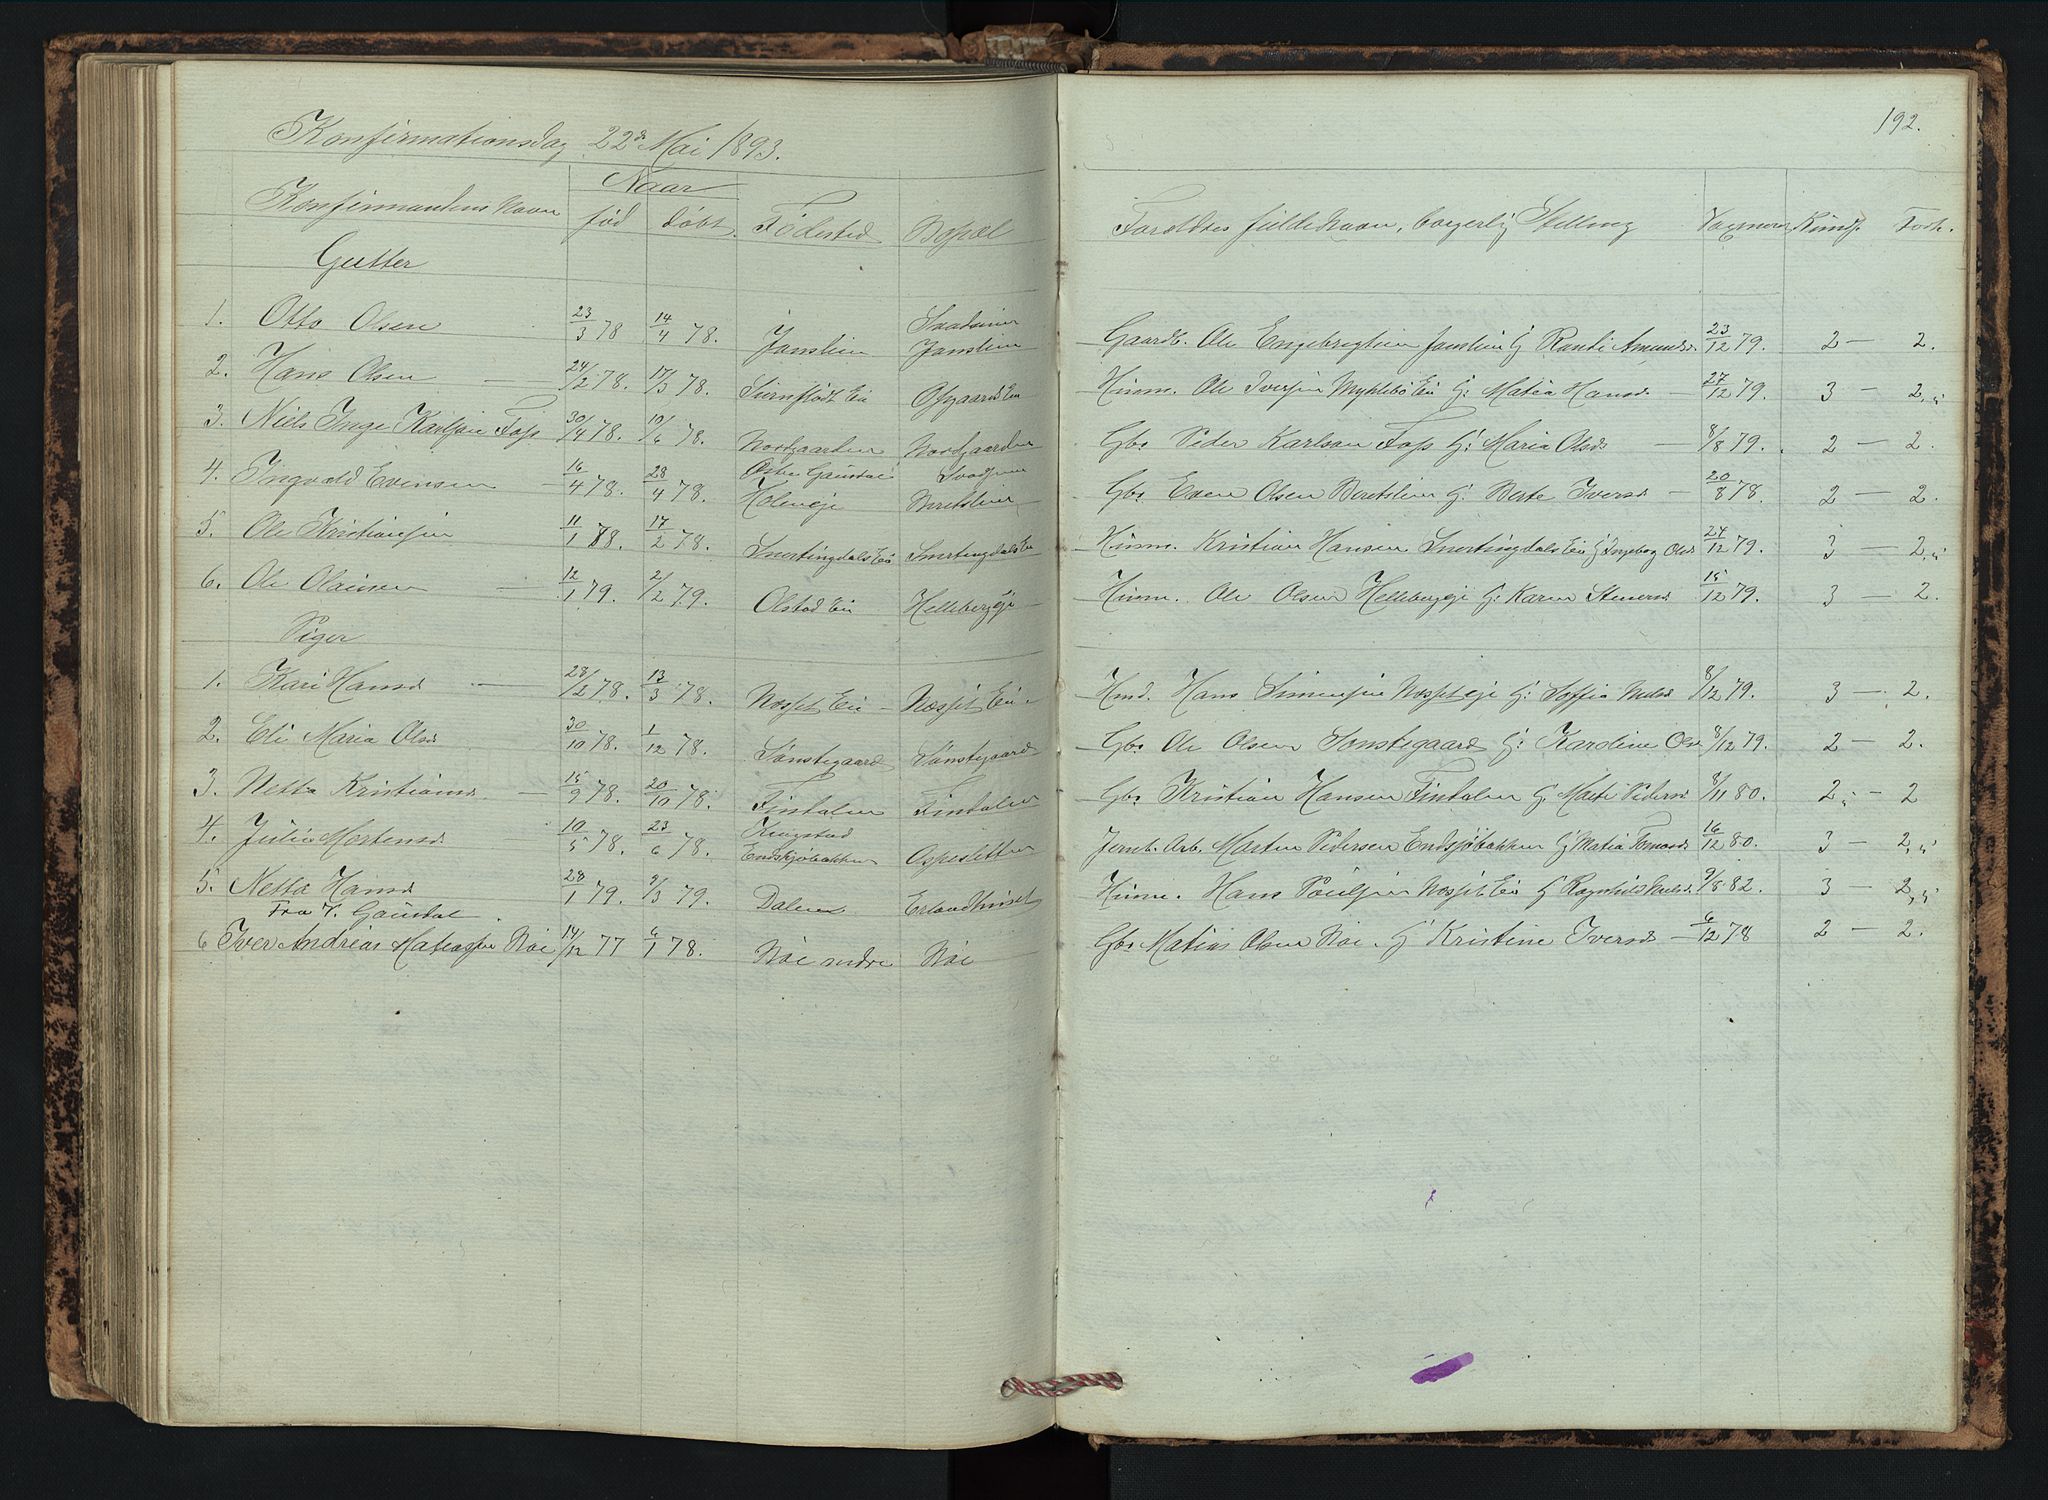 192.
Konfirmationsdag 22de Mai 1893.
Konfirmandens Navn Naar født døbt Fødested Bopæl Forældres fulde Navn, borgerlig Stilling Vaxineret Kundsk. Forh.
Gutter
1. Otto Olsen 23/3 78 14/4 78. Janslien Svadsum Janslien Gaardb. Ole Engebregtsen Janslien G Randi Amundsd 23/12 79. 2 — 2.
2. Hans Olsen — 24/12 78. 17/3 78. Ei Ofigaards Ei Husm. Ole Iversen Myklebø Ei G: Matia Hansd 27/12 79. 3 — 2,,
3. Niels Inge Karlsen Foss 30/4 78. 10/6 78. Nordgaarden Nordgaarden Gbr Peder Karlsen Foss G: Maria Olsd — 8/8 79. 2 — 2.
4. Ingvald Evensen — 16/4 78. 28/4 78. Østre Gausdal Holeneje Svadsum Beretslien Gbr Even Olsen Beretslien G: Berte Iversd — 20/8 78. 2 — 2.
5. Ole Kristiansen 11/1 78. 17/2 78. Snertingdals Ei Snertingdals Ei Husm. Kristian Hansen Snertingdals Ei G Ingeborg Olsd 27/12 79. 3 — 2,,
6. Ole Olaisen — 12/1 79. 2/2 79. Olstad Ei Hellebergeje Husm. Ole Olsen Hellebergeje G: Karen Stenersd 15/12 79. 3 — 2.
Piger
1. Kari Hansd — 28/12 78. 13/3 78. Næsset Ei — Næsset Ei. Hmd. Hans Simensen Næsseteje G: Soffia Nielsd 8/12 79. 3 — 2.
2. Eli Maria Olsd 30/10 78. 1/12 78. Sønstegaard Sønstegaard Gbr Ole Olsen Sønstegaard G: Karoline Olsd 8/12 79. 2 — 2.
3. Netta Kristiansd. — 15/9 78. 20/10 78. Findalen Findalen Gbr Kristian Hansen Findalen G: Mate Pedersd 8/11 80. 2,, — 2
4. Julie Mortensd — 10/5 78. 23/6 78. Ringstad Endsjøbakken Aspesletten Jernb. Arb. Morten Pedersen Endsjøbakken G Matia 16/12 80. 3 — 2,,
5. Netta Hansd 28/1 79. 9/3 79. Dalen Erlandhuset Husm. Hans Poulsen Næsset Ei G Ragnhild Nielsd 9/8 82. 3 — 2,,
Fra V. Gausdal.
6 Iver Andreas Mateassen Roe 14/12 77 6/1 78. Roe nedre Roe Gbr Matias Olsen Roe. G Kristine Iversd — 6/12 78 2 — 2.